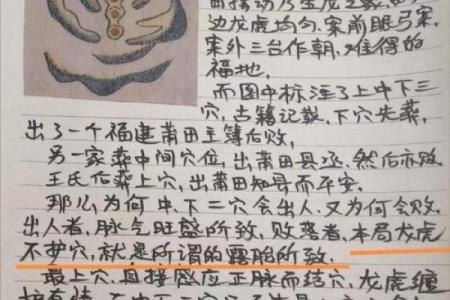 边龙虎均匀.案前眠弓案,
案外三台作朝,难得的
福地,
而图中标注了上中下三
穴,古籍记载,下穴先葬,
出了一个福建莆田主簿后败,
另一家葬中间穴位,出莆田县丞.然后亦败.
王氏后葬上穴,出莆田知县而平安.
那么,为何中、下二穴会出人.又为何会败.
出人者,脉气旺盛所致,败落者,本局龙虎
不护穴,就是所谓的露胎所致.
最上穴.直接感应正脉而结穴,龙虎缠